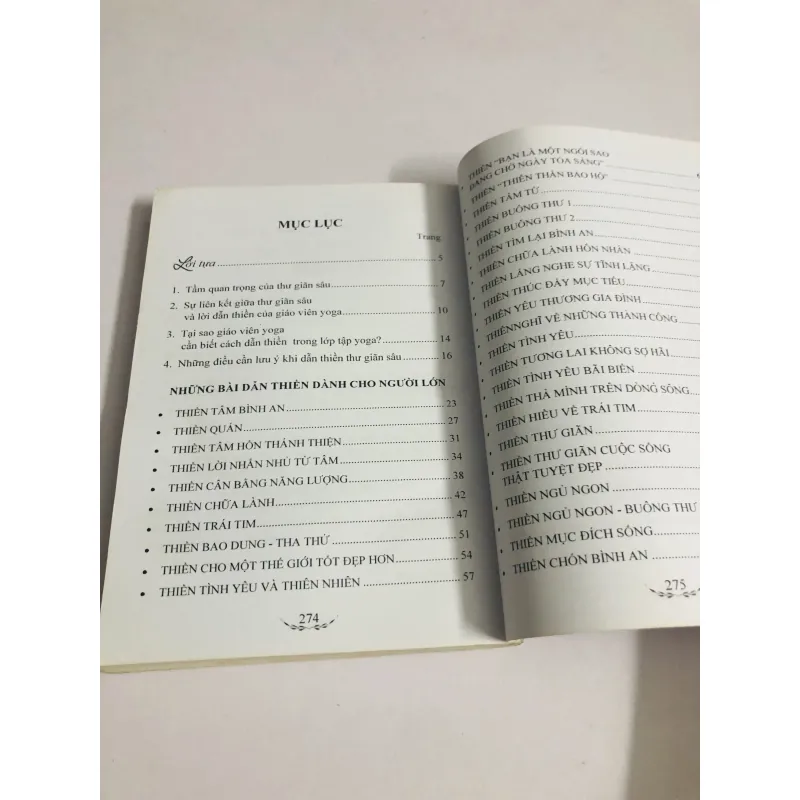 MỤC LỤC
Trang
Lời tựa ..... 5
1. Tầm quan trọng của thư giãn sâu ..... 7
2. Sự liên kết giữa thư giãn sâu
và lời dẫn thiền của giáo viên yoga ..... 10
3. Tại sao giáo viên yoga
cần biết cách dẫn thiền trong lớp tập yoga? ..... 14
4. Những điều cần lưu ý khi dẫn thiền thư giãn sâu ..... 16
NHỮNG BÀI DẪN THIỀN DÀNH CHO NGƯỜI LỚN
• THIỀN TÂM BÌNH AN ..... 23
• THIỀN QUÁN ..... 27
• THIỀN TÂM HỒN THÁNH THIỆN ..... 31
• THIỀN LỜI NHẮN NHỦ TỪ TÂM ..... 34
• THIỀN CÂN BẰNG NĂNG LƯỢNG ..... 38
• THIỀN CHỮA LÀNH ..... 42
• THIỀN TRÁI TIM ..... 47
• THIỀN BAO DUNG - THA THỨ ..... 51
• THIỀN CHO MỘT THẾ GIỚI TỐT ĐẸP HƠN ..... 54
• THIỀN TÌNH YÊU VÀ THIÊN NHIÊN ..... 57
274
• THIỀN "BẠN LÀ MỘT NGÔI SAO
ĐANG CHỜ NGÀY TỎA SÁNG"
• THIỀN "THIÊN THẦN BẢO HỘ"
• THIỀN TÂM TỪ
• THIỀN BUÔNG THƯ 1
• THIỀN BUÔNG THƯ 2
• THIỀN TÌM LẠI BÌNH AN
• THIỀN CHỮA LÀNH HÔN NHÂN
• THIỀN LẮNG NGHE SỰ TĨNH LẶNG
• THIỀN THÚC ĐẨY MỤC TIÊU
• THIỀN YÊU THƯƠNG GIA ĐÌNH
• THIỀNNGHĨ VỀ NHỮNG THÀNH CÔNG
• THIỀN TÌNH YÊU
• THIỀN TƯƠNG LAI KHÔNG SỢ HÃI
• THIỀN TÌNH YÊU BÃI BIỂN
• THIỀN THẢ MÌNH TRÊN DÒNG SÔNG
• THIỀN HIỂU VỀ TRÁI TIM
• THIỀN THƯ GIÃN
• THIỀN THƯ GIÃN CUỘC SỐNG
THẬT TUYỆT ĐẸP
• THIỀN NGỦ NGON
• THIỀN NGỦ NGON - BUÔNG THƯ
• THIỀN MỤC ĐÍCH SỐNG
• THIỀN CHỐN BÌNH AN
275